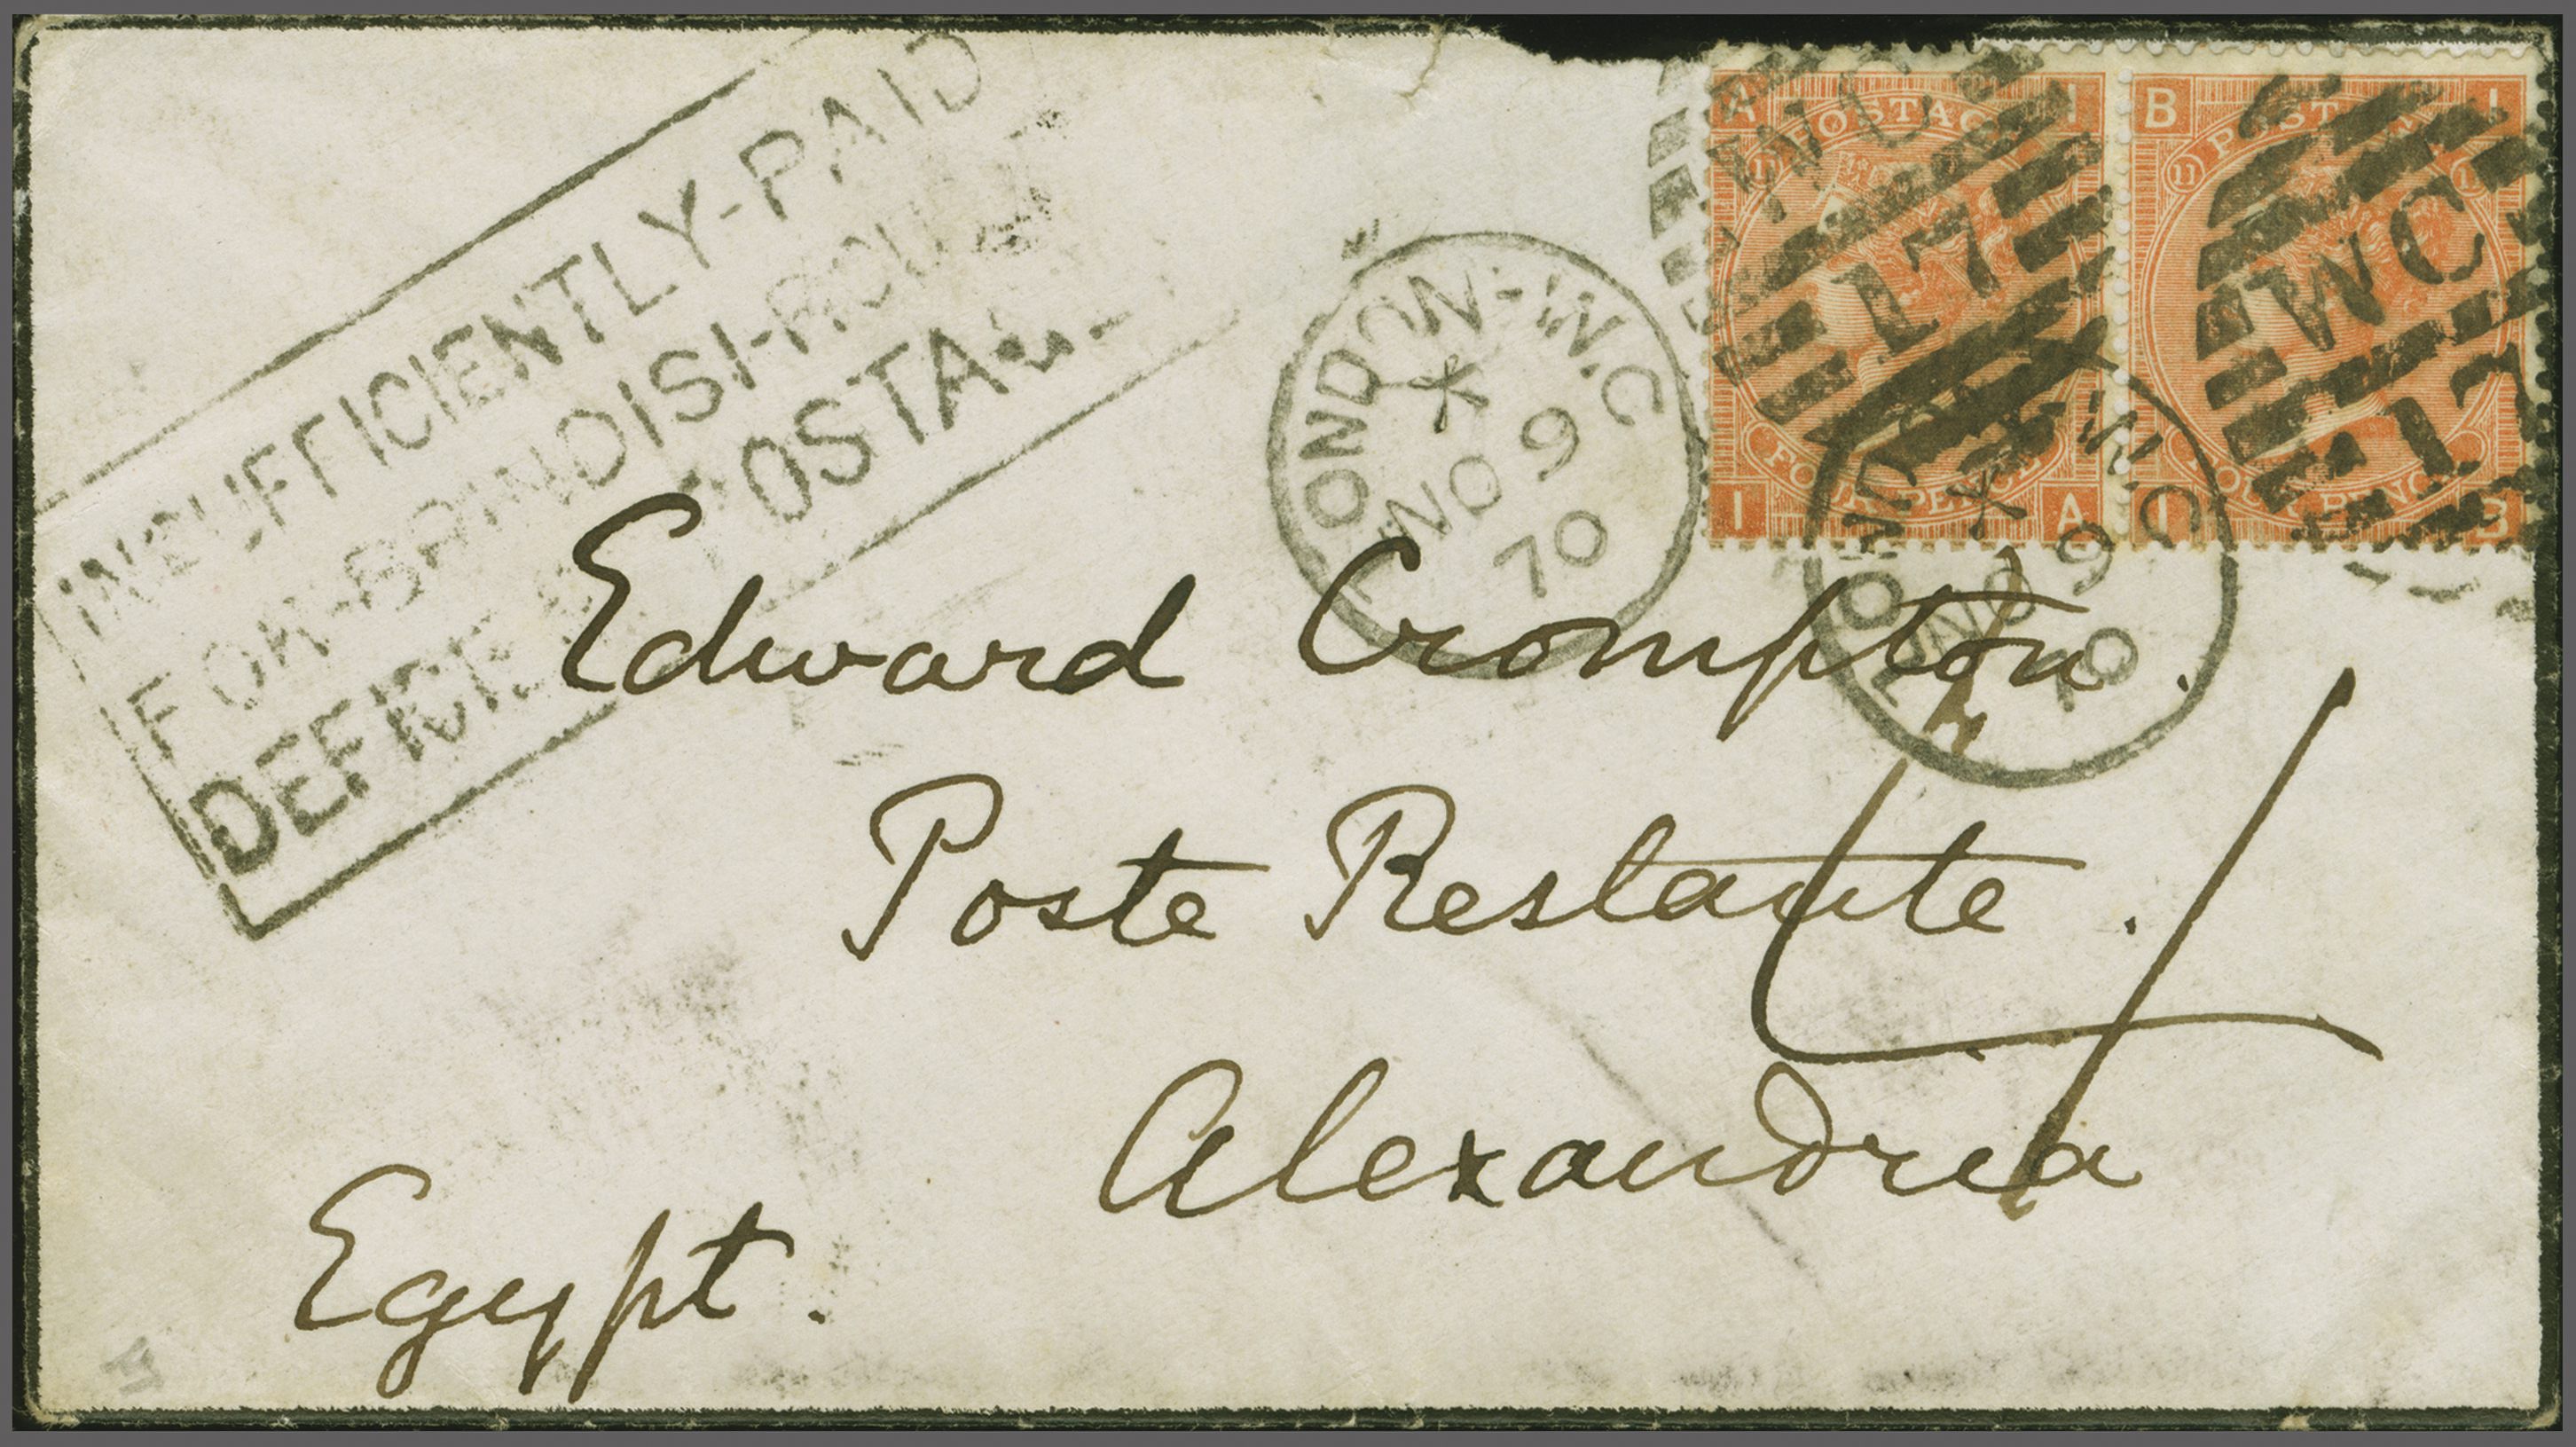 INSUFFICIENTLY-PAID
FOR-BRINDISI-ROUTE
DEFICIENT POSTAGE
LONDON-W.C
X
NO 9
70
A I
POSTAGE
11
FOUR PENCE
I A
B I
POSTAGE
11 11
FOUR PENCE
I B
WC
17
WC
17
LONDON-W.C
X
NO 9
70
Edward Crompton.
Poste Restante.
Alexandria
Egypt.